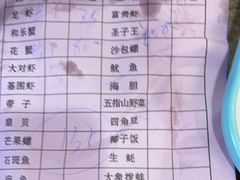 龙虾 富贵虾
和乐蟹 圣子王
花蟹 沙包螺
大对虾 鱿鱼
基围虾 海胆
带子 五指山野菜
扇贝 四角豆
芒果螺 椰子饭
石斑鱼 生蚝
大象拨蚌